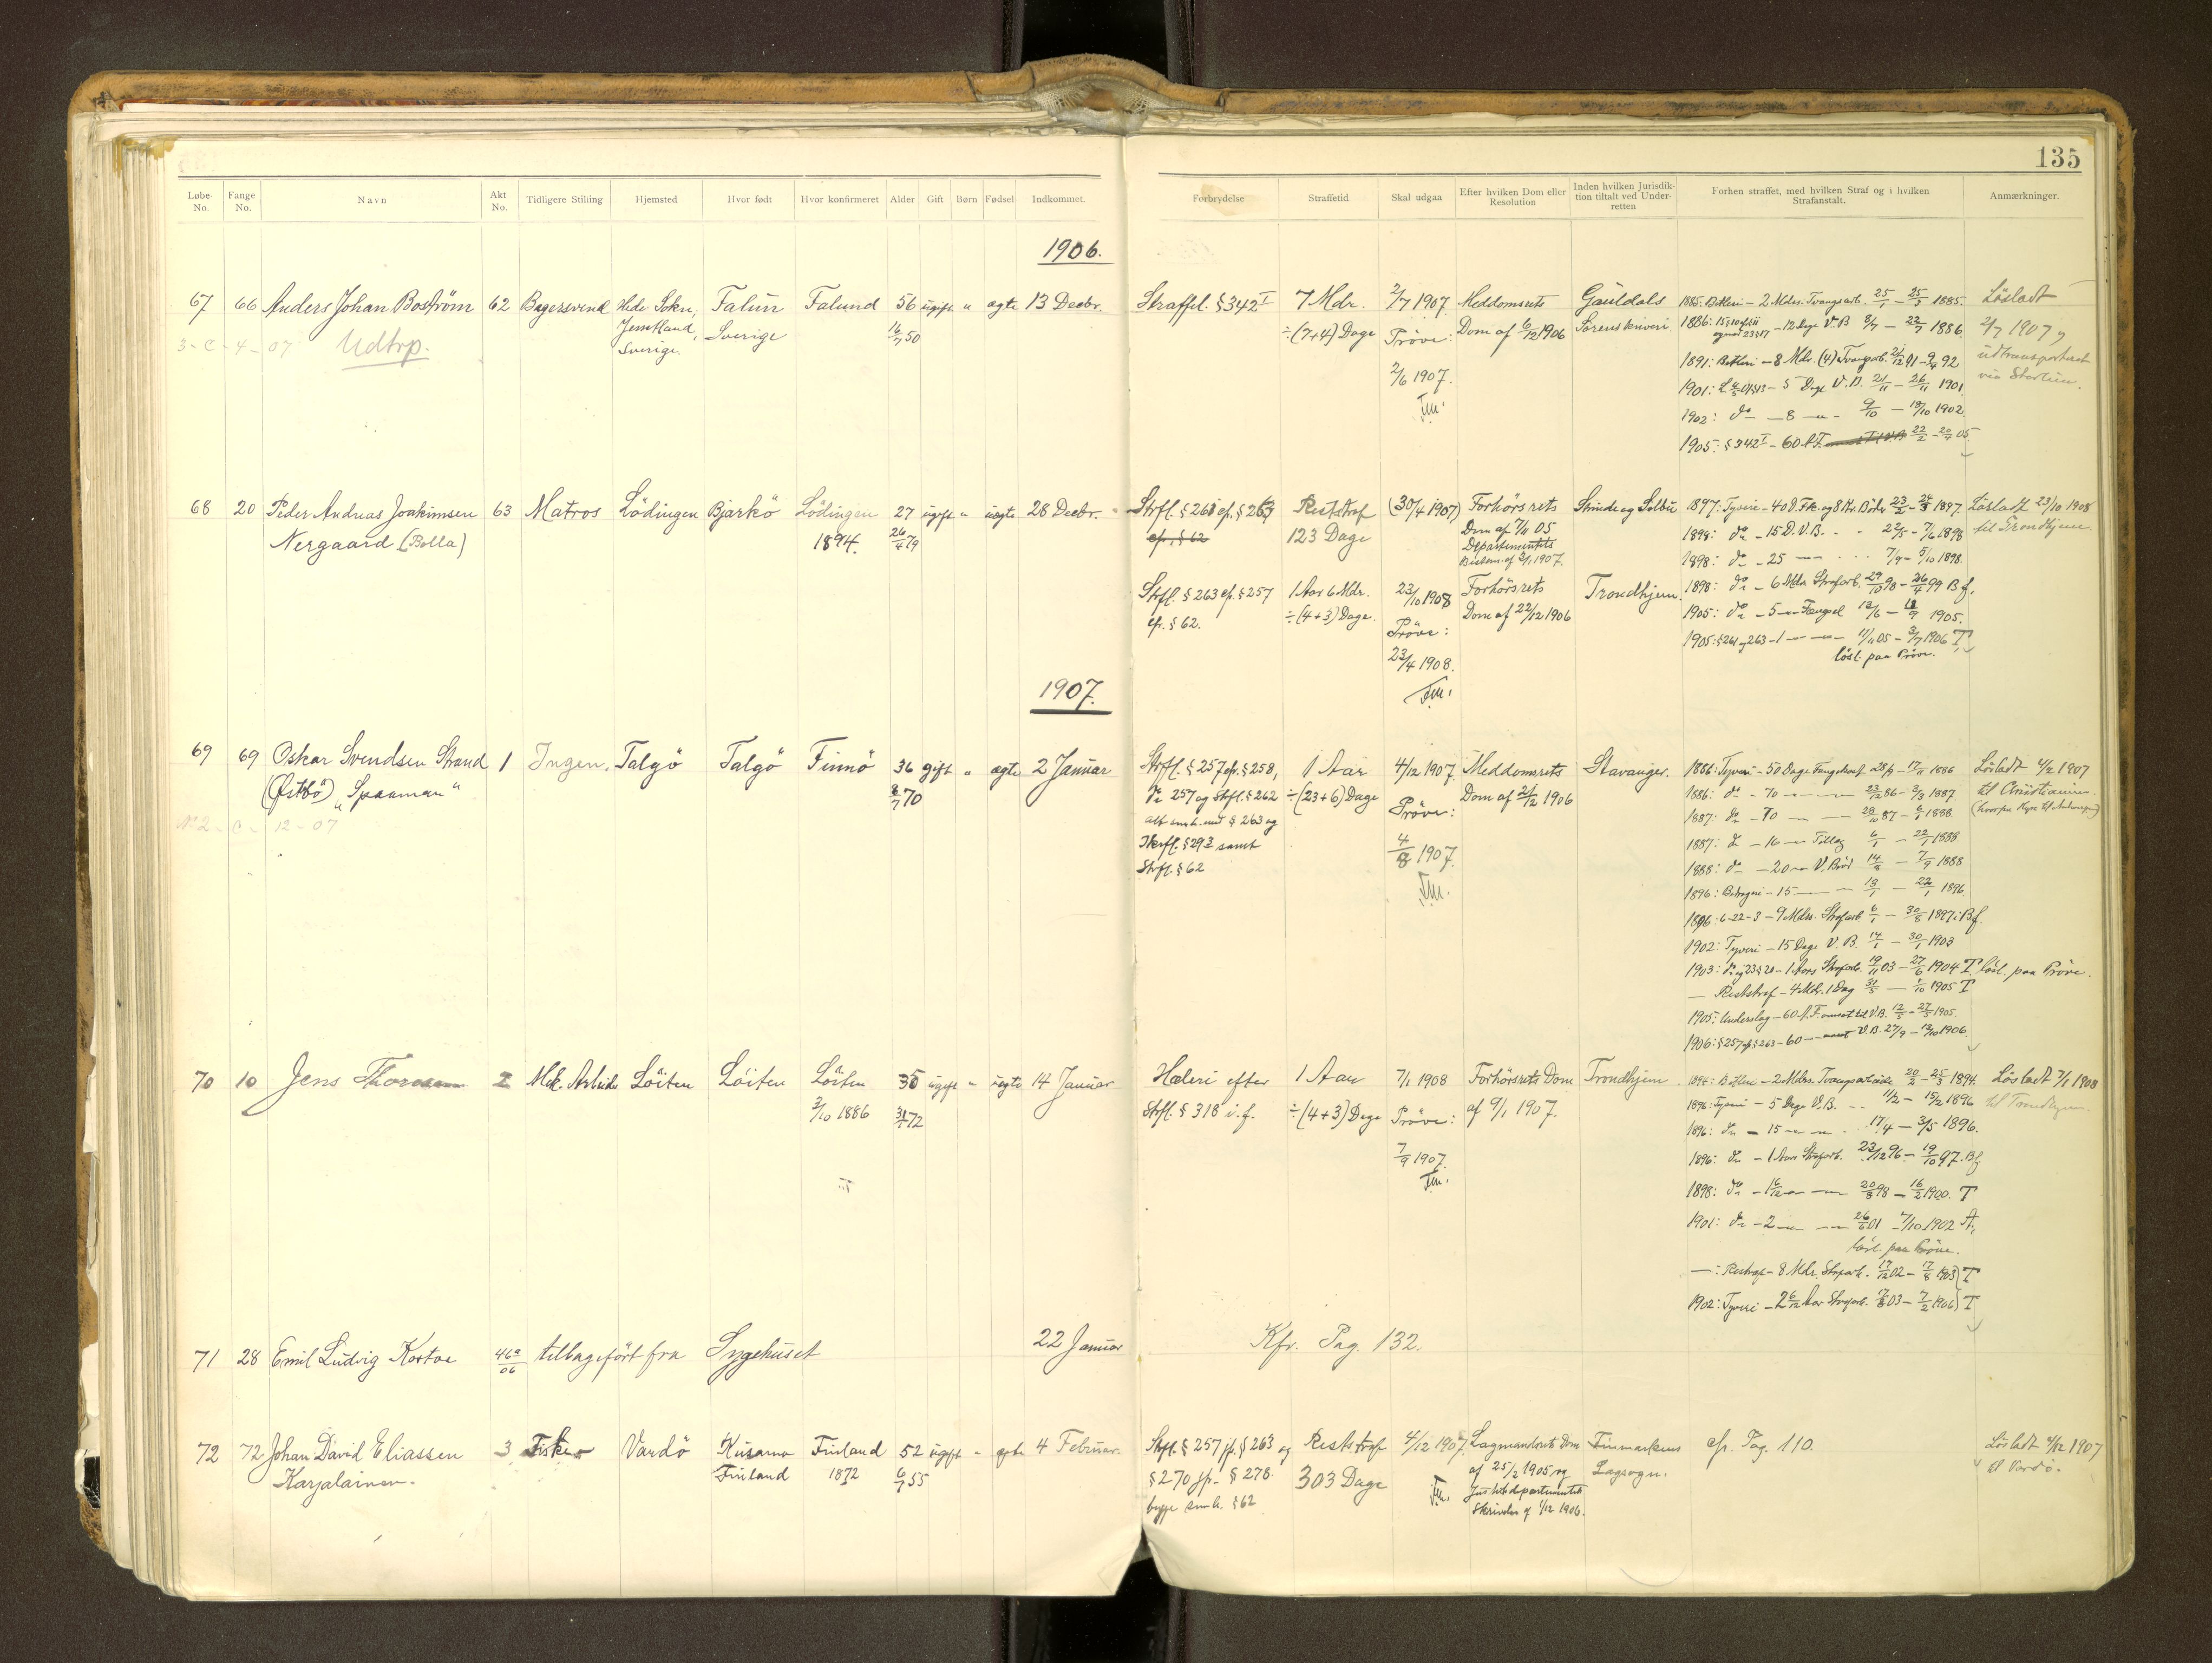 135
Løbe No. Fange No. Navn Akt No. Tidligere Stilling Hjemsted Hvor født Hvor konfirmeret Alder Gift Børn Fødsel Indkommet.
Forbrydelse Straffetid Skal udgaa Efter hvilken Dom eller Resolution Inden hvilken Jurisdiktion tiltalt ved Underretten Forhen straffet, med hvilken Straf og i hvilken Strafanstalt. Anmærkninger.
1906.
67 66 Anders Johan Boström 62 Bagersvend Hede Sokn, Falun Falund 56 ugift " ægte 13 Decbr.
Jemtland, Sverige 16/7 50
Sverige.
3-C-4-07 Udtrp.
Straffel. § 342 I 7 Mdr. 2/7 1907. Meddomsrets Gauldals
÷(7+4) Dage Prøve: Dom af 6/12 1906 Sorenskriveri
2/6 1907.
Fm.
1885: Betleri - 2 Mdrs. Tvangsarb. 25/1 - 25/3 1885.
1886: - 12 Dage V.B. 8/7 - 22/7 1886.
1891: Betleri - 8 Mdr. (4) Tvangsarb. 21/12 91 - 9/4 92
1901: - 5 Dage V.B. 21/11 - 26/11 1901
1902: do - 8 - " - 9/10 - 18/10 1902.
1905: § 342 I - 60 22/2 - 20/4 05.
Løsladt
2/7 1907 og
udtransporteret
via Storlien.
68 20 Peder Andreas Joakimsen 63 Matros Lödingen Bjarkö Lödingen 27 ugift " uægte 28 Decbr.
Nergaard (Bolla) 1894. 26/4 79
Strfl. § 261 cfr. § 263 Reststraf (30/4 1907) Forhørsrets Strinde og Selbu
cfr. § 62 123 Dage Dom af 7/11 05
Departementets
Bestem. af 2/1 1907.
Strfl. § 263 cfr. § 257 1 Aar 6 Mdr. 23/10 1908 Forhørsrets Trondhjem.
cfr. § 62. ÷(4+3) Dage. Prøve: Dom af 22/12 1906
23/4 1908.
Fm.
1897: Tyveri - 40 D. Fk. og 8 Kr. Böder 23/2 - 24/3 1897.
1898: do - 15 D. V.B. - - 22/5 - 7/6 1898
1898: do - 25 - - 7/9 - 5/10 1898.
1898: do - 6 Mdr. Strafarb. 29/10 98 - 26/4 99 Bf.
1905: do - 5 - Fængsel 12/6 - 18/9 1905.
1905: § 261 og 263 - 1 - - 11/11 05 - 3/7 1906 T
løsl. paa Prøve.
Løsladt 23/10 1908
til Trondhjem.
1907.
69 69 Oskar Svendsen Strand 1 Ingen. Talgö Talgö Finnö 36 gift " ægte 2 Januar
(Østbö) "Spaaman" 8/7 70
No 2 - C - 12 - 07
Strfl. § 257 cfr. § 258, 1 Aar 4/12 1907. Meddomsrets Stavanger.
do 257 og Strfl. § 262 ÷(23+6) Dage Prøve: Dom af 21/12 1906
alt smh. med § 263 og 4/8 1907.
Ikrfl. § 29 3 samt Fm.
Strfl. § 62
1886: Tyveri - 50 Dage Fængselsstraf 28/9 - 17/11 1886
1886: do - 70 - - 23/12 86 - 3/3 1887.
1887: do - 70 - - 28/10 87 - 6/1 1888.
1887: do - 16 - Tillæg 6/1 - 22/1 1888.
1888: do - 20 - V. Bröd 14/8 - 7/9 1888
1896: Bedrageri - 15 - - 18/1 - 22/1 1896
1896: 6-22-3 - 9 Mdrs. Strafarb. 6/1 - 30/8 1897. Bf.
1902: Tyveri - 15 Dage V.B. 14/1 - 30/1 1903
1903: do og 23 § 20 - 1 Aars Strafarb. 19/11 03 - 27/6 1904 T løsl. paa Prøve.
— Reststraf - 4 Mdr. 1 Dag 31/5 - 1/10 1905 T
1905: Underslag - 60 omsat til V.B. 12/5 - 27/5 1905.
1906: § 257 cfr. § 263 - 60 - omsat V.B. 27/9 - 12/10 1906.
Løsladt 4/12 1907
til Christiania
70 10 Jens Thoresen 2 Mek. Arbeider Löiten Löiten Löiten 35 ugift " uægte 14 Januar
3/10 1886 31/1 72
Hæleri efter 1 Aar 7/1 1908 Forhørsrets Dom Trondhjem.
Strfl. § 318 i.f. ÷(4+3) Dage Prøve: af 9/1 1907.
7/9 1907.
Fm.
1894: Betleri - 2 Mdrs. Tvangsarbeide 20/2 - 25/3 1894.
1896: Tyveri - 5 Dage V.B. - - 11/2 - 15/2 1896
1896: do - 15 - " - 17/4 - 3/5 1896.
1896: do - 1 Aars Strafarb. 23/12 96 - 19/10 97. Bf
1898: do - 1 6/12 - - 20/8 98 - 16/2 1900. T
1901: do - 2 - - 26/6 01 - 7/10 1902 A.
løsl. paa Prøve.
—: Reststraf - 8 Mdr. Strafarb. 17/12 02 - 17/8 1903 T
1902: Tyveri - 2 6/12 Aar Strafarb. 17/8 03 - 7/2 1906 T
Løsladt 7/1 1908
til Trondhjem.
71 28 Emil Ludvig Kostoe 46a/06 tilbageført fra Sygehuset 22 Januar
Kfr. Pag. 132.
72 72 Johan David Eliassen 3 Fisker Vardö Kusamo Finland 52 ugift " ægte 4 Februar.
Karjalainen. Finland 1872 6/7 55
Strfl. § 257 jfr. § 263 og Reststraf 4/12 1907. Lagmandsrets Dom Finmarkens cfr. Pag. 110.
§ 270 jfr. § 278 303 Dage Fm. af 25/2 1905 og Lagsogn.
begge smh. § 62 Justitsdepartementets
Skrivelse af 1/12 1906.
Løsladt 4/12 1907
til Vardö.